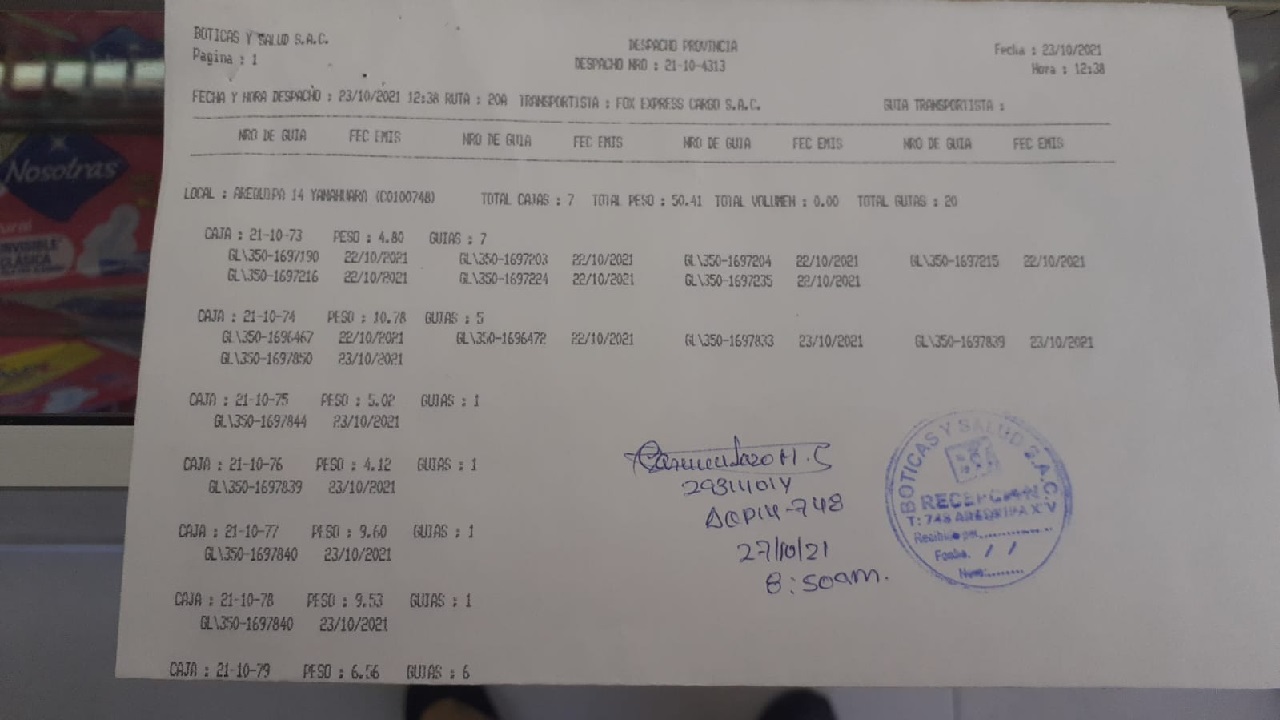 BOTICAS Y SALUD S.A.C.
Pagina : 1
DESPACHO PROVINCIA
DESPACHO NRO : 21-10-4313
Fecha : 23/10/2021
Hora : 12:38
FECHA Y HORA DESPACHO : 23/10/2021 12:38 RUTA : 20A TRANSPORTISTA : FOX EXPRESS CARGO S.A.C. GUIA TRANSPORTISTA :
NRO DE GUIA FEC EMIS NRO DE GUIA FEC EMIS NRO DE GUIA FEC EMIS NRO DE GUIA FEC EMIS
LOCAL : AREQUIPA 14 YANAHUARA (C0100748) TOTAL CAJAS : 7 TOTAL PESO : 50.41 TOTAL VOLUMEN : 0.00 TOTAL GUIAS : 20
CAJA : 21-10-73 PESO : 4.80 GUIAS : 7
GL\350-1697190 22/10/2021 GL\350-1697203 22/10/2021 GL\350-1697204 22/10/2021 GL\350-1697215 22/10/2021
GL\350-1697216 22/10/2021 GL\350-1697224 22/10/2021 GL\350-1697235 22/10/2021
CAJA : 21-10-74 PESO : 10.78 GUIAS : 5
GL\350-1696467 22/10/2021 GL\350-1696472 22/10/2021 GL\350-1697833 23/10/2021 GL\350-1697839 23/10/2021
GL\350-1697850 23/10/2021
CAJA : 21-10-75 PESO : 5.02 GUIAS : 1
GL\350-1697844 23/10/2021
CAJA : 21-10-76 PESO : 4.12 GUIAS : 1
GL\350-1697839 23/10/2021
CAJA : 21-10-77 PESO : 9.60 GUIAS : 1
GL\350-1697840 23/10/2021
CAJA : 21-10-78 PESO : 9.53 GUIAS : 1
GL\350-1697840 23/10/2021
CAJA : 21-10-79 PESO : 6.56 GUIAS : 6
29311014
AQP14-748
27/10/21
8:50am.
BOTICAS Y SALUD S.A.C.
RECEPCION
T: 748 AREQUIPA XIV
Recibido por
Fecha. / /
Hora:
Nosotras
INVISIBLE
CLÁSICA